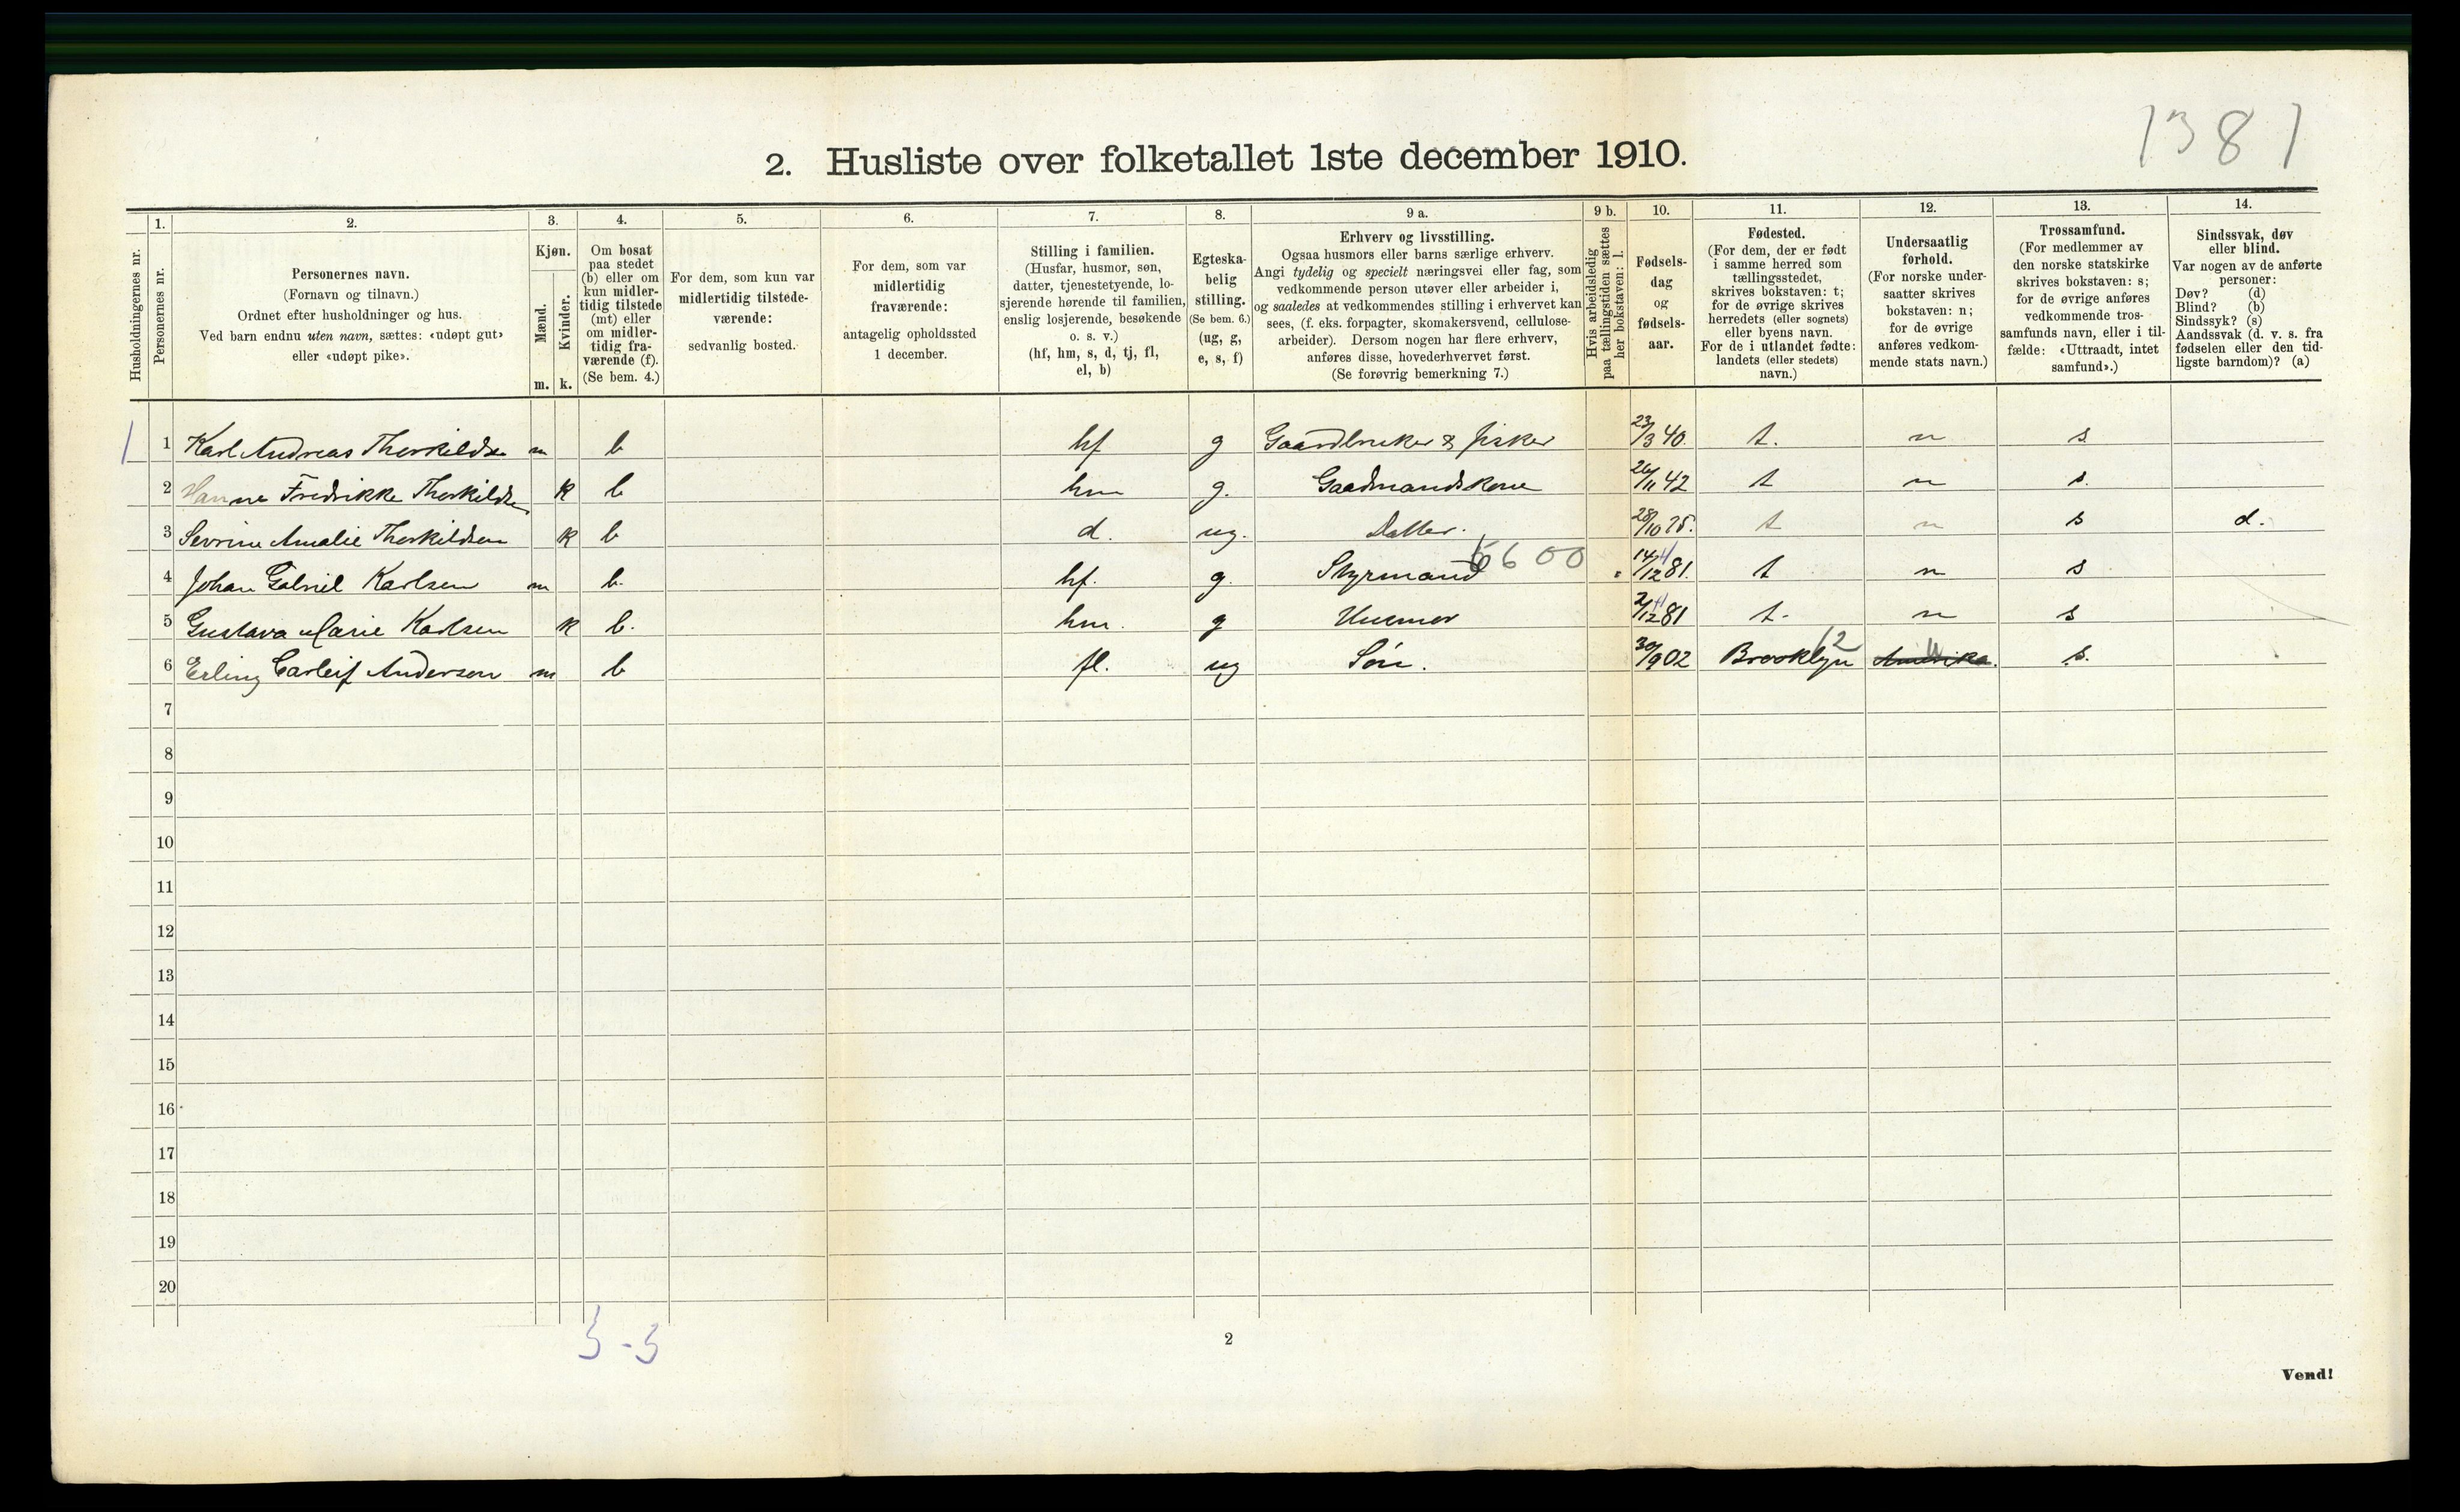 1381
2. Husliste over folketallet 1ste december 1910.
Husholdningernes nr.
1. Personernes nr.
2. Personernes navn.
(Fornavn og tilnavn.)
Ordnet efter husholdninger og hus.
Ved barn endnu uten navn, sættes: «udøpt gut»
eller «udøpt pike».
3. Kjøn.
Mænd. m.
Kvinder. k.
4. Om bosat
paa stedet
(b) eller om
kun midler-
tidig tilstede
(mt) eller
om midler-
tidig fra-
værende (f).
(Se bem. 4.)
5. For dem, som kun var
midlertidig tilstede-
værende:
sedvanlig bosted.
6. For dem, som var
midlertidig
fraværende:
antagelig opholdssted
1 december.
7. Stilling i familien.
(Husfar, husmor, søn,
datter, tjenestetyende, lo-
sjerende hørende til familien,
enslig losjerende, besøkende
o. s. v.)
(hf, hm, s, d, tj, fl,
el, b)
8. Egteska-
belig
stilling.
(Se bem. 6.)
(ug, g,
e, s, f)
9 a. Erhverv og livsstilling.
Ogsaa husmors eller barns særlige erhverv.
Angi tydelig og specielt næringsvei eller fag, som
vedkommende person utøver eller arbeider i,
og saaledes at vedkommendes stilling i erhvervet kan
sees, (f. eks. forpagter, skomakersvend, cellulose-
arbeider). Dersom nogen har flere erhverv,
anføres disse, hovederhvervet først.
(Se forøvrig bemerkning 7.)
9 b. Hvis arbeidsledig
paa tællingstiden sættes
her bokstaven: l.
10. Fødsels-
dag
og
fødsels-
aar.
11. Fødested.
(For dem, der er født
i samme herred som
tællingsstedet,
skrives bokstaven: t;
for de øvrige skrives
herredets (eller sognets)
eller byens navn.
For de i utlandet fødte:
landets (eller stedets)
navn.)
12. Undersaatlig
forhold.
(For norske under-
saatter skrives
bokstaven: n;
for de øvrige
anføres vedkom-
mende stats navn.)
13. Trossamfund.
(For medlemmer av
den norske statskirke
skrives bokstaven: s;
for de øvrige anføres
vedkommende tros-
samfunds navn, eller i til-
fælde: «Uttraadt, intet
samfund».)
14. Sindssvak, døv
eller blind.
Var nogen av de anførte
personer:
Døv? (d)
Blind? (b)
Sindssyk? (s)
Aandssvak (d. v. s. fra
fødselen eller den tid-
ligste barndom)? (a)
1 1 Karl Andreas Thorkildsen m b hf g Gaardbruker & fisker 23/3 40. t. n s
2 Hanne Fredrikke Thorkildsen k b hm g. Gaadmandskone 26/11 42 t n s.
3 Sevrine Amalie Thorkildsen k b d. ug. Datter. 28/10 75. t n s d.
4 Johan Gabriel Karlsen m b. hf. g. Styrmand 6600 14/12 81. t n s
5 Gustava Marie Karlsen k b. hm. g Husmor 2/12 81 t. n s
6 Erling Carleif Anderson m b fl. ug Søn. 30/9 02 Brooklyn 12 Amerika. n s.
7
8
9
10
11
12
13
14
15
16
17
18
19
20
3-3
2
Vend!